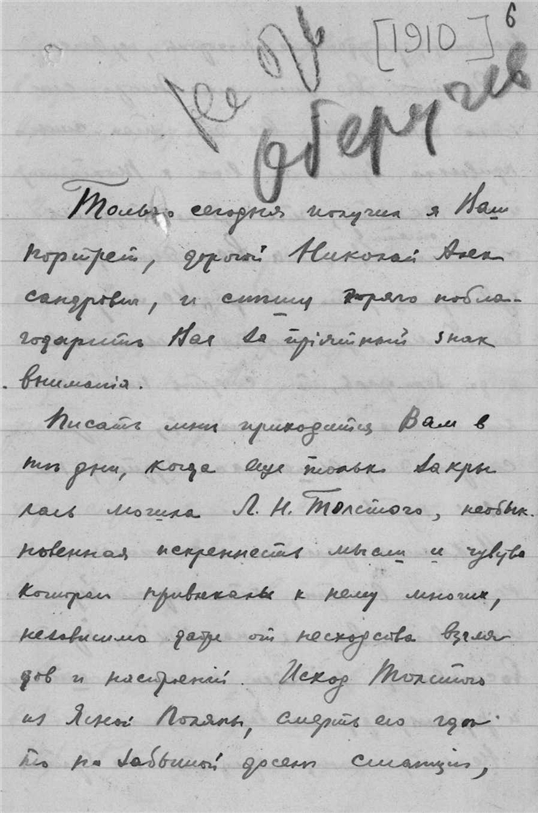 6
[1910]
Обручев
Только сегодня получил я Ваш
портрет, дорогой Николай Алек
сандрович, и спешу горячо побла-
годарить Вас за приятный знак
вниманія.
Писать мне приходится Вам в
те дни, когда еще только закры
лась могила Л. Н. Толстого, необык-
новенная искренность мысли и чувства
которая привлекала к нему многих,
независимо даже от несходства взгля
дов и настроений. Исход Толстого
из Ясной Поляны, смерть его где
то на забытой доселе станции,